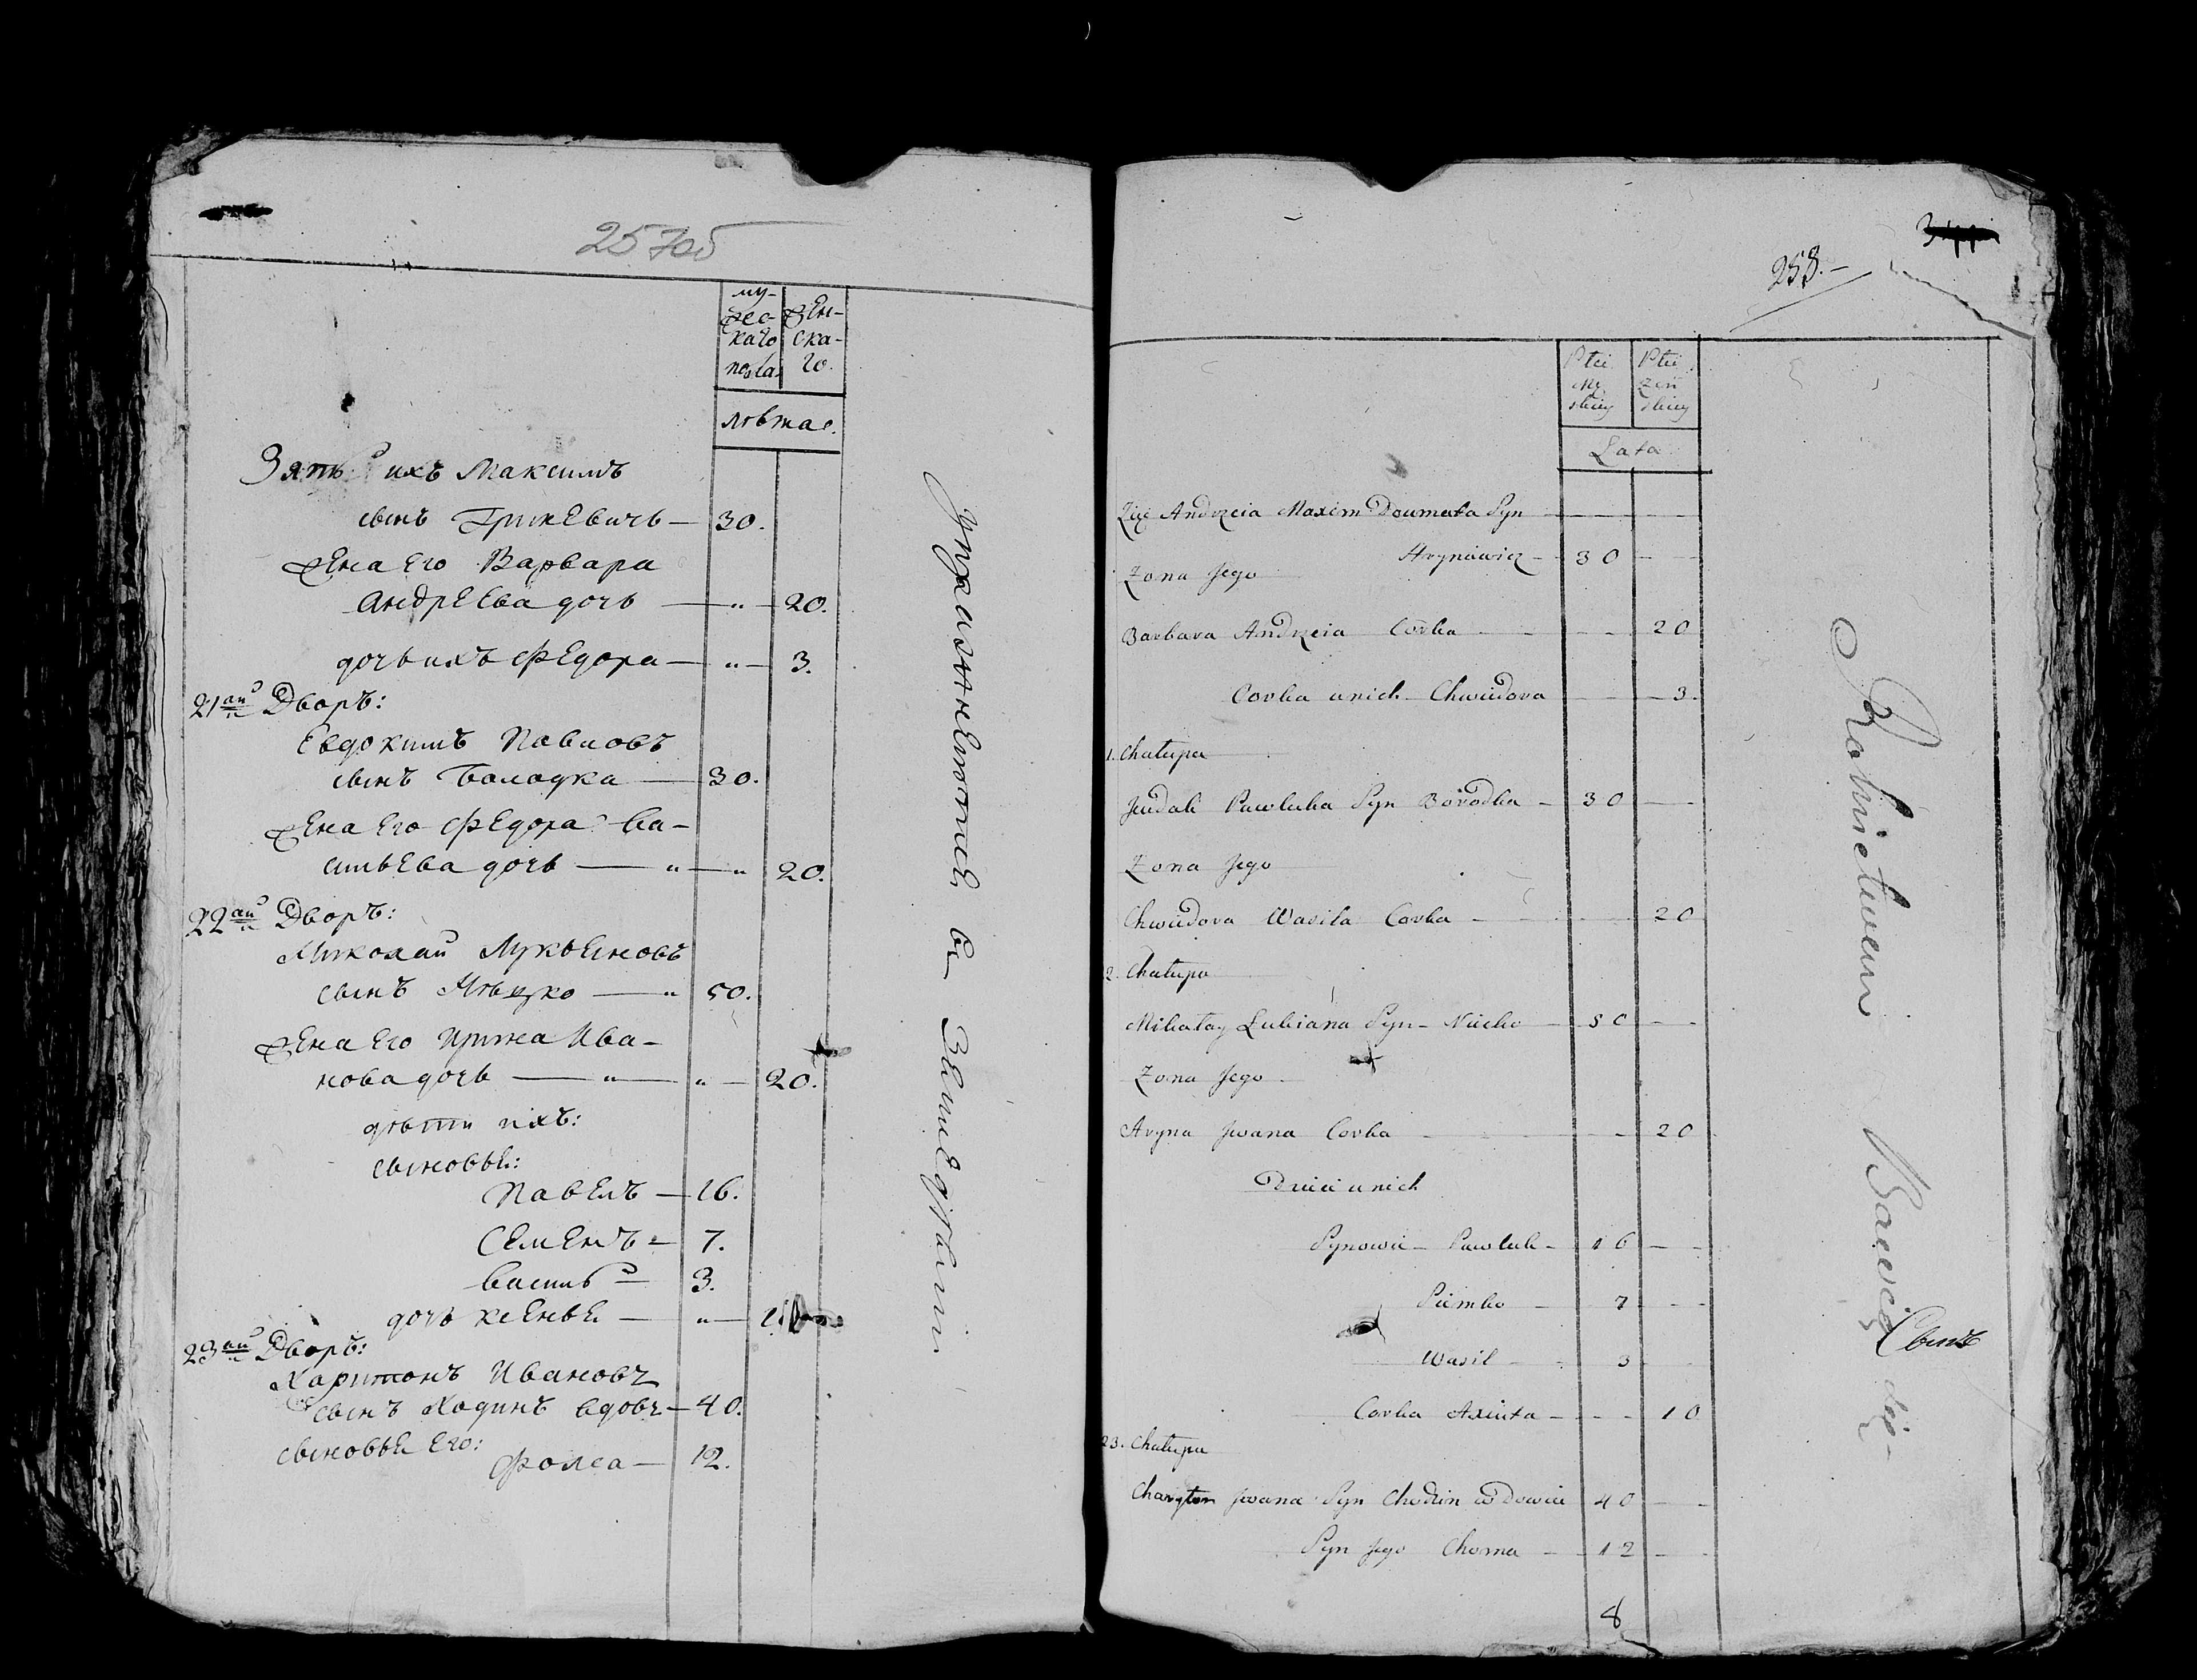 257об
му-
жес-
каго
пола
жен-
ска-
го.
лѣта.
Зять ихъ Максимъ
сынъ Гриневичь — 30.
жена его Варвара
Андреева дочь — " — 20.
дочь ихъ Федора — " — 3.
21ай Дворъ:
Евдокимъ Павловъ
сынъ Бологка — 30.
жена его Федора Ва-
сильева дочь — " — " 20.
22ай Дворъ:
Николай Лукьяновъ
сынъ — " 50.
жена его Ирина Ива-
нова дочь — " — " — 20.
дѣти ихъ:
сыновья:
Павелъ — 16.
Семенъ — 7.
Василь — 3.
дочь Ксенья — " —
23ай Дворъ:
Харитонъ Ивановъ
сынъ Ходинъ вдовъ — 40.
сыновья его:
Фома — 12.
упражняется въ Земледѣлии
258.-
Płci
Mę
skiey
Płci
żeń
skiey
Lata
Zięć Andrzeia Maxim Daumata Syn
Hryniewicz — 30
Zona Jego
Barbara Andrzeia Corka 20
Corka u nich Chwiedora 3.
1. Chałupa
Jeudak Pawluka Syn Borodka — 30
Zona Jego
Chwiedora Wasila Corka 20
2. Chałupa
Mikołay Lukiana Syn 50
Zona Jego
Aryna Jwana Corka 20
Dzieci u nich
Synowie — Pawluk — 16
Siemko — 7
Wasil — 3
Corka Axiuta — 10
23. Chałupa
Charyton Jwana Syn Chodzin wdowiec 40
Syn Jego Choma — 12
8
Rolnictwem Bawią się